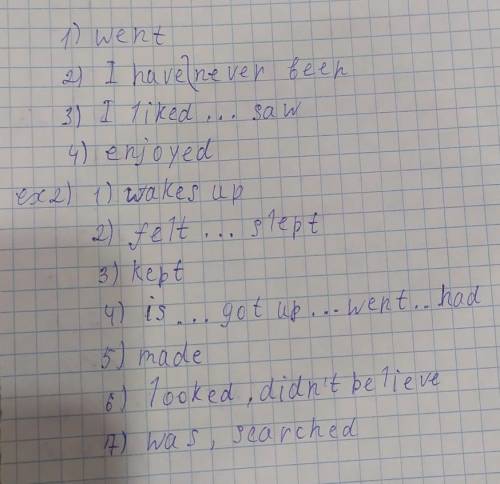 1) went
2) I have never been
3) I liked ... saw
4) enjoyed
ex2) 1) wakes up
2) felt ... slept
3) kept
4) is ... got up ... went .. had
5) made
6) looked, didn't believe
7) was, searched